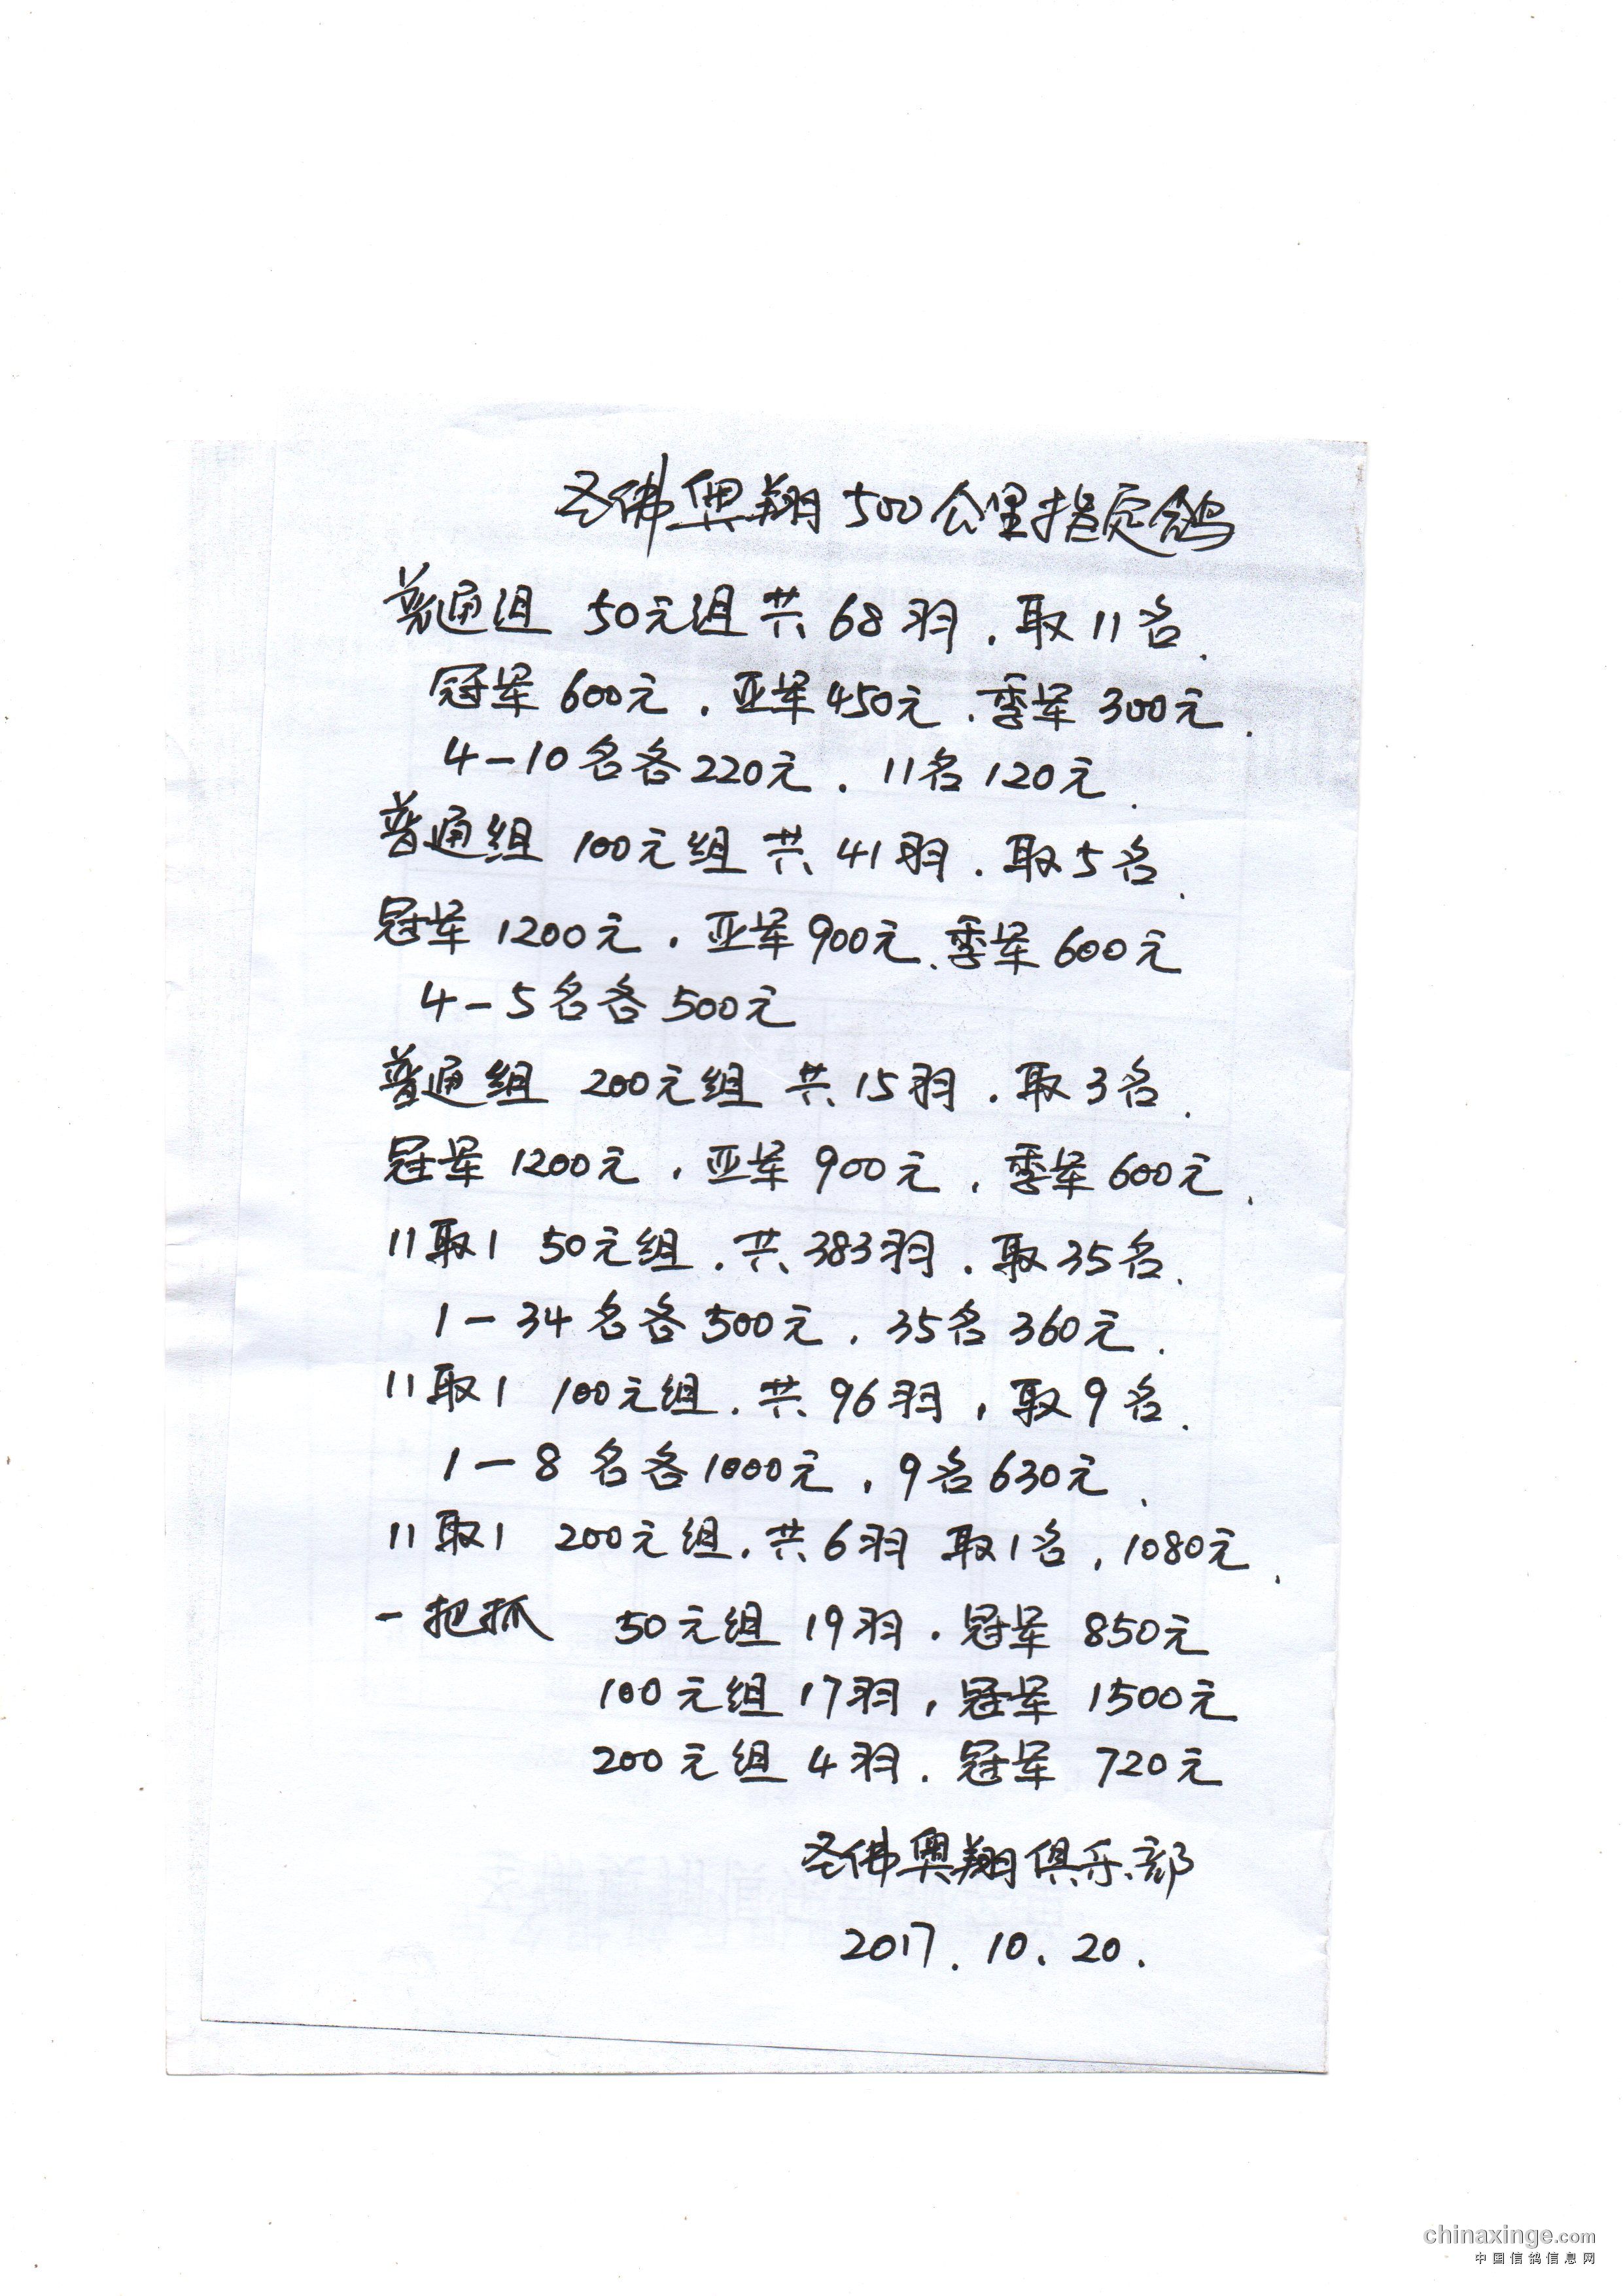 圣佛奥翔500公里指定鸽
普通组 50元组共68羽.取11名.
冠军600元.亚军450元.季军300元.
4-10名各220元.11名120元.
普通组 100元组共41羽.取5名.
冠军1200元.亚军900元.季军600元
4-5名各500元
普通组 200元组共15羽.取3名.
冠军1200元,亚军900元,季军600元.
11取1 50元组.共383羽.取35名.
1-34名各500元.35名360元.
11取1 100元组.共96羽,取9名.
1-8名各1000元,9名630元.
11取1 200元组.共6羽 取1名,1080元.
一把抓 50元组 19羽.冠军 850元
100元组 17羽,冠军 1500元
200元组 4羽.冠军 720元
圣佛奥翔俱乐部
2017.10.20.
chinaxinge.com
中国信鸽信息网